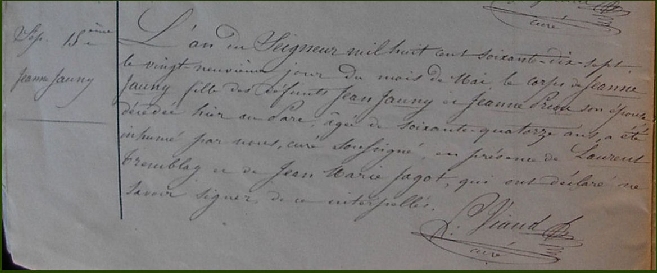 curé
Sép. 15 ième
Jeanne Jauny
L'an du Seigneur mil huit cent soixante-dix-sept
le vingt-neuvième jour du mois de Mai, le corps de Jeanne
Jauny fille des défunts Jean Jauny et Jeanne son épouse
décédée hier au Parc âgée de soixante-quatorze ans, a été
inhumé par nous, curé soussigné, en présence de Laurent
Tremblay et de Jean Marie Jagot, qui ont déclaré ne
savoir signer, de ce interpellés.
Viaud
curé